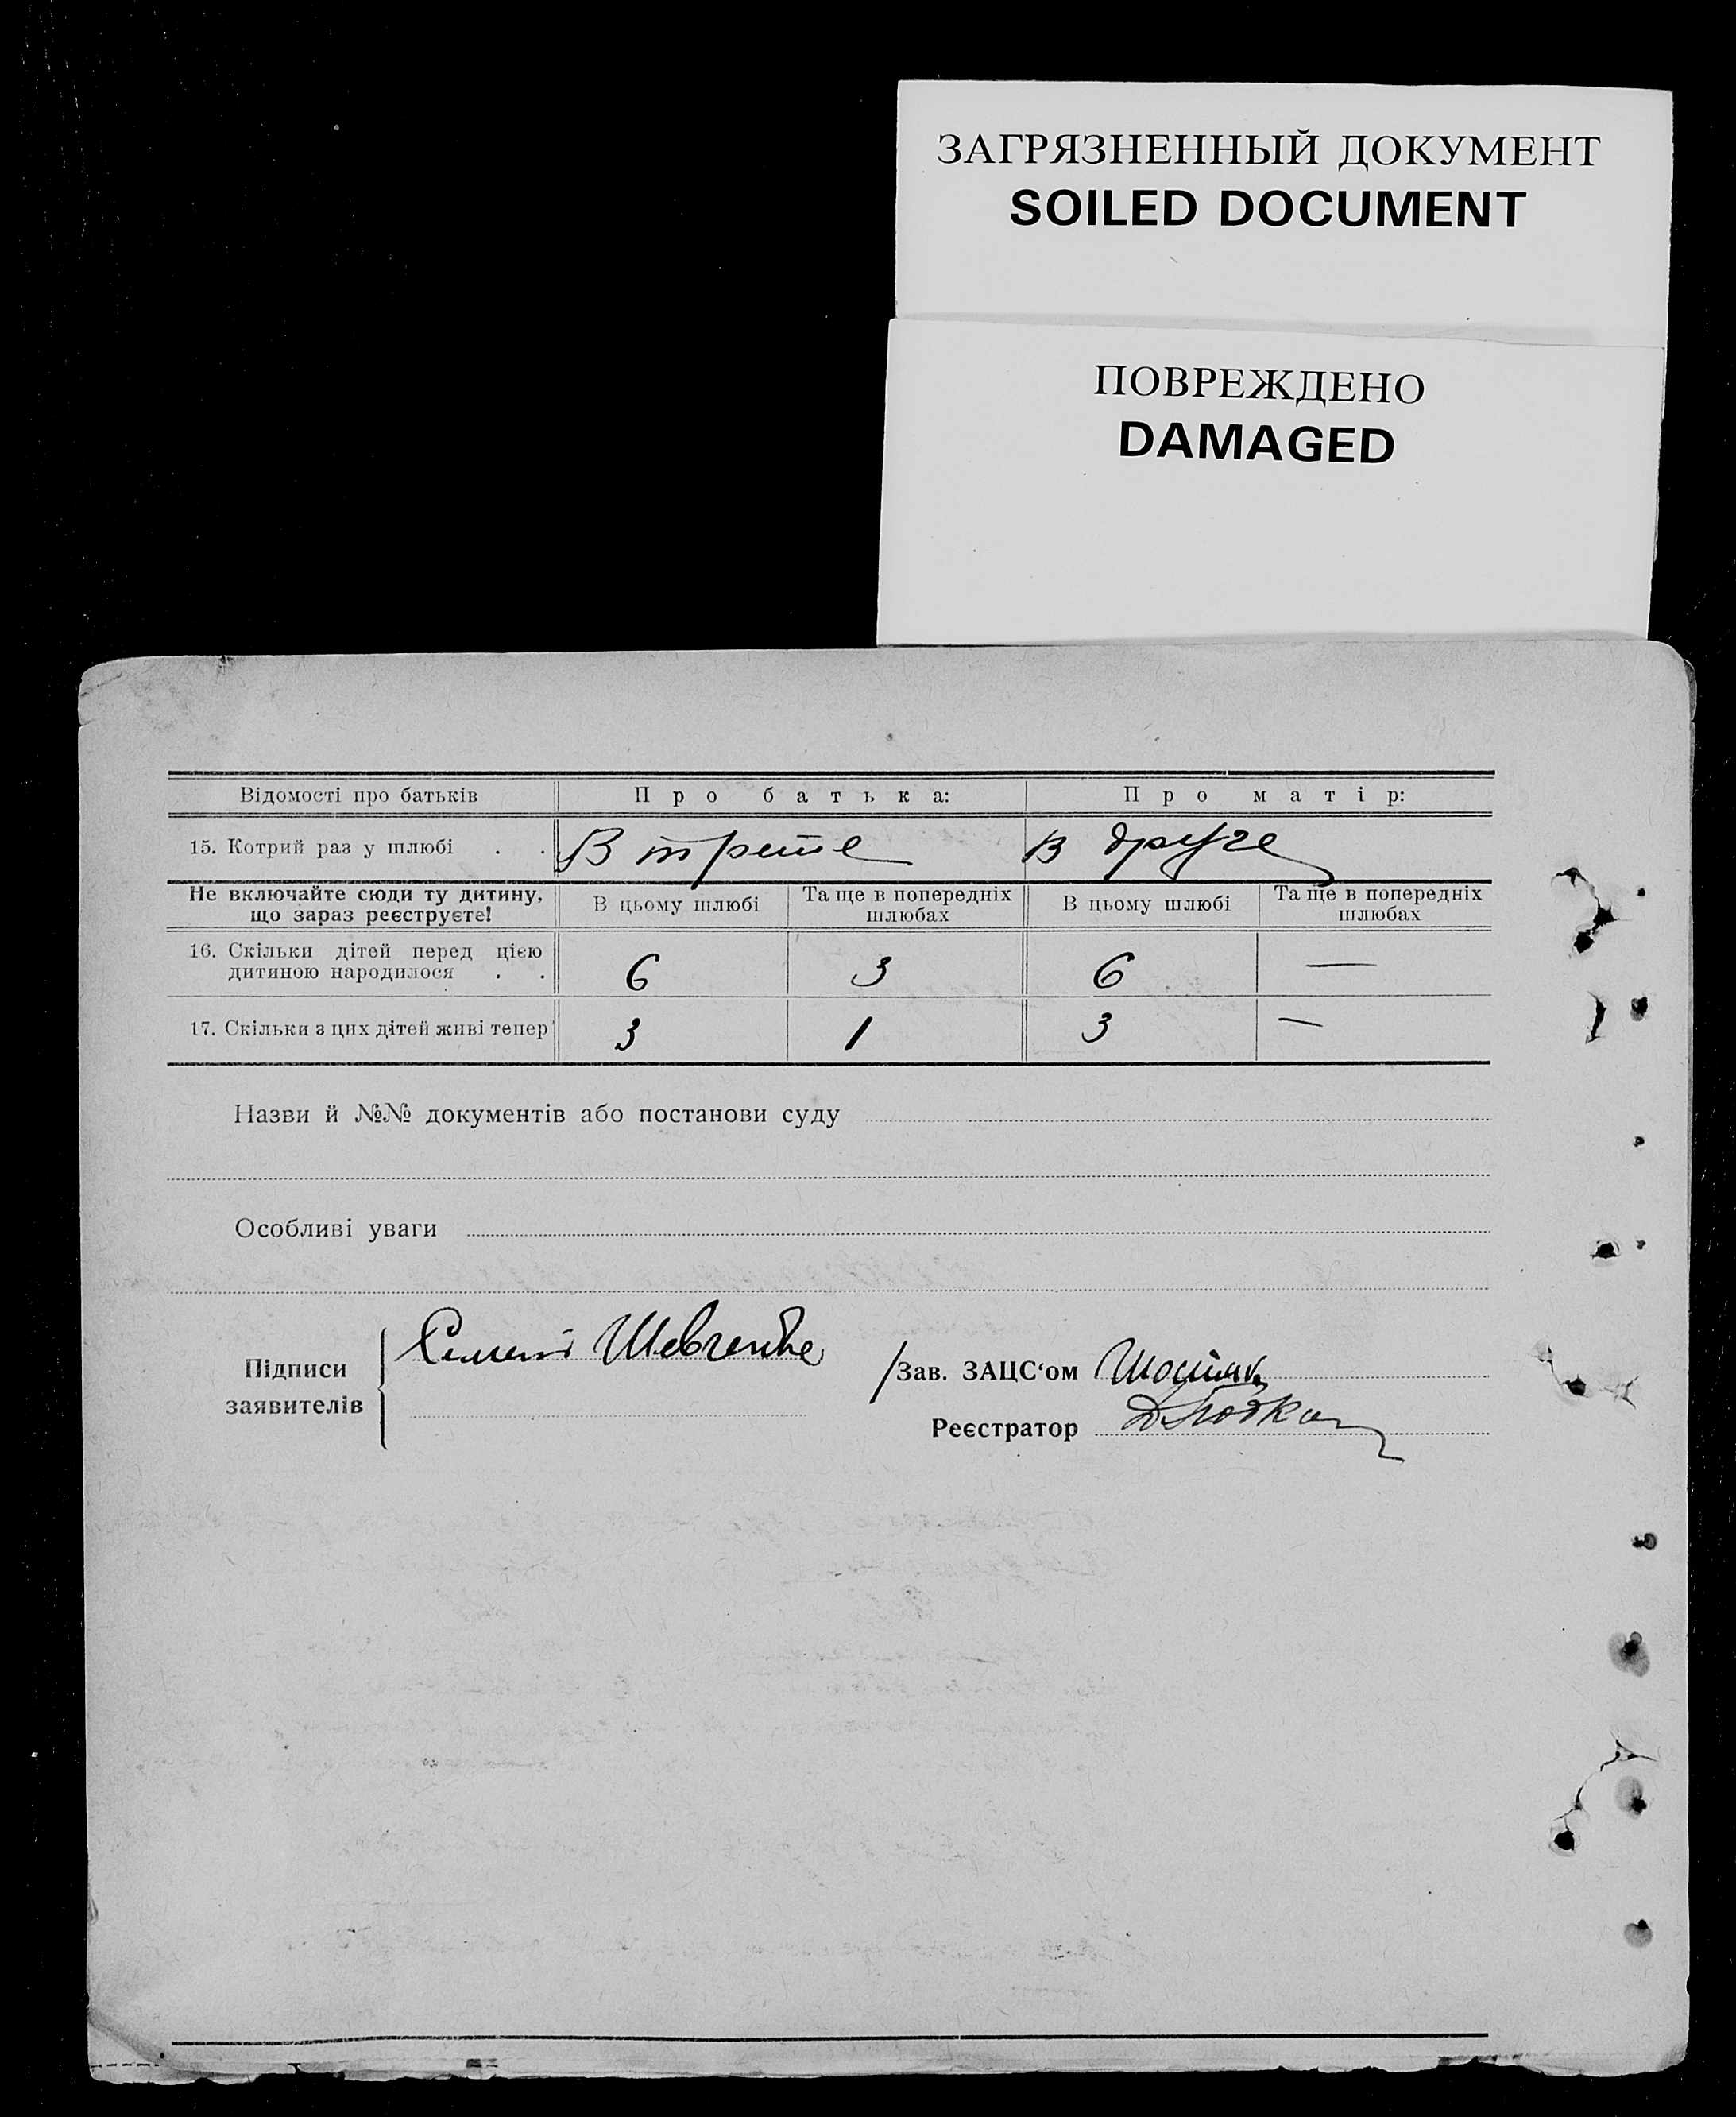 ЗАГРЯЗНЕННЫЙ ДОКУМЕНТ
SOILED DOCUMENT
ПОВРЕЖДЕНО
DAMAGED
Відомості про батьків Про батька: Про матір:
15. Котрий раз у шлюбі . . В третє В друге
Не включайте сюди ту дитину, що зараз реєструєте! В цьому шлюбі Та ще в попередніх шлюбах В цьому шлюбі Та ще в попередніх шлюбах
16. Скільки дітей перед цією дитиною народилося . . 6 3 6 —
17. Скільки з цих дітей живі тепер 3 1 3 —
Назви й №№ документів або постанови суду
Особливі уваги
Підписи заявителів Шевченко
/Зав. ЗАЦС‘ом
Реєстратор